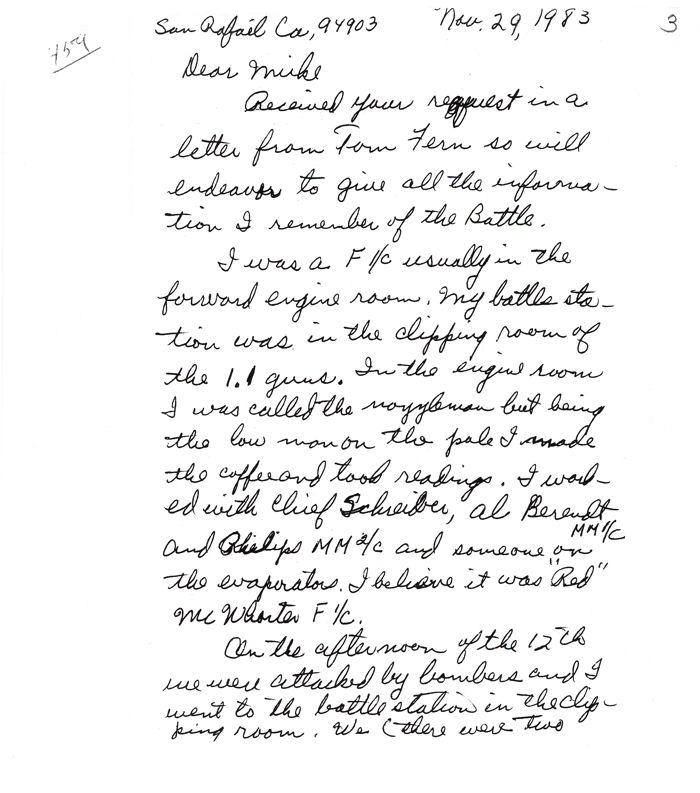 San Rafael Ca, 94903 Nov. 29, 1983 3
Dear Mike
Received your request in a
letter from Tom Fern so will
endeavor to give all the informa-
tion I remember of the Battle.
I was a F 1/c usually in the
forward engine room. My battle sta-
tion was in the clipping room of
the 1.1 guns. In the engine room
I was called the nozzleman but being
the low man on the pole I made
the coffee and took readings. I work-
ed with Chief Schreiber, Al Berendt
MM 1/c
and Philips MM 2/c and someone on
the evaporators. I believe it was "Red"
McWhorter F 1/c.
On the afternoon of the 12th
we were attacked by bombers and I
went to the battle station in the clip-
ping room. We (there were two